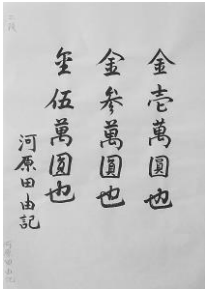 金壱萬圓也
金参萬圓也
金伍萬圓也
河原田由記
河原田由記